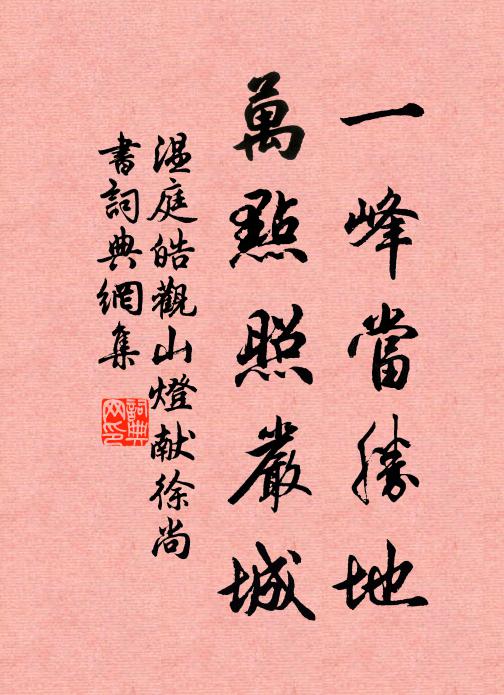 一峰當勝地
萬點照嚴城
溫庭皓觀山燈献徐尚
書詞典網集
詞典網印